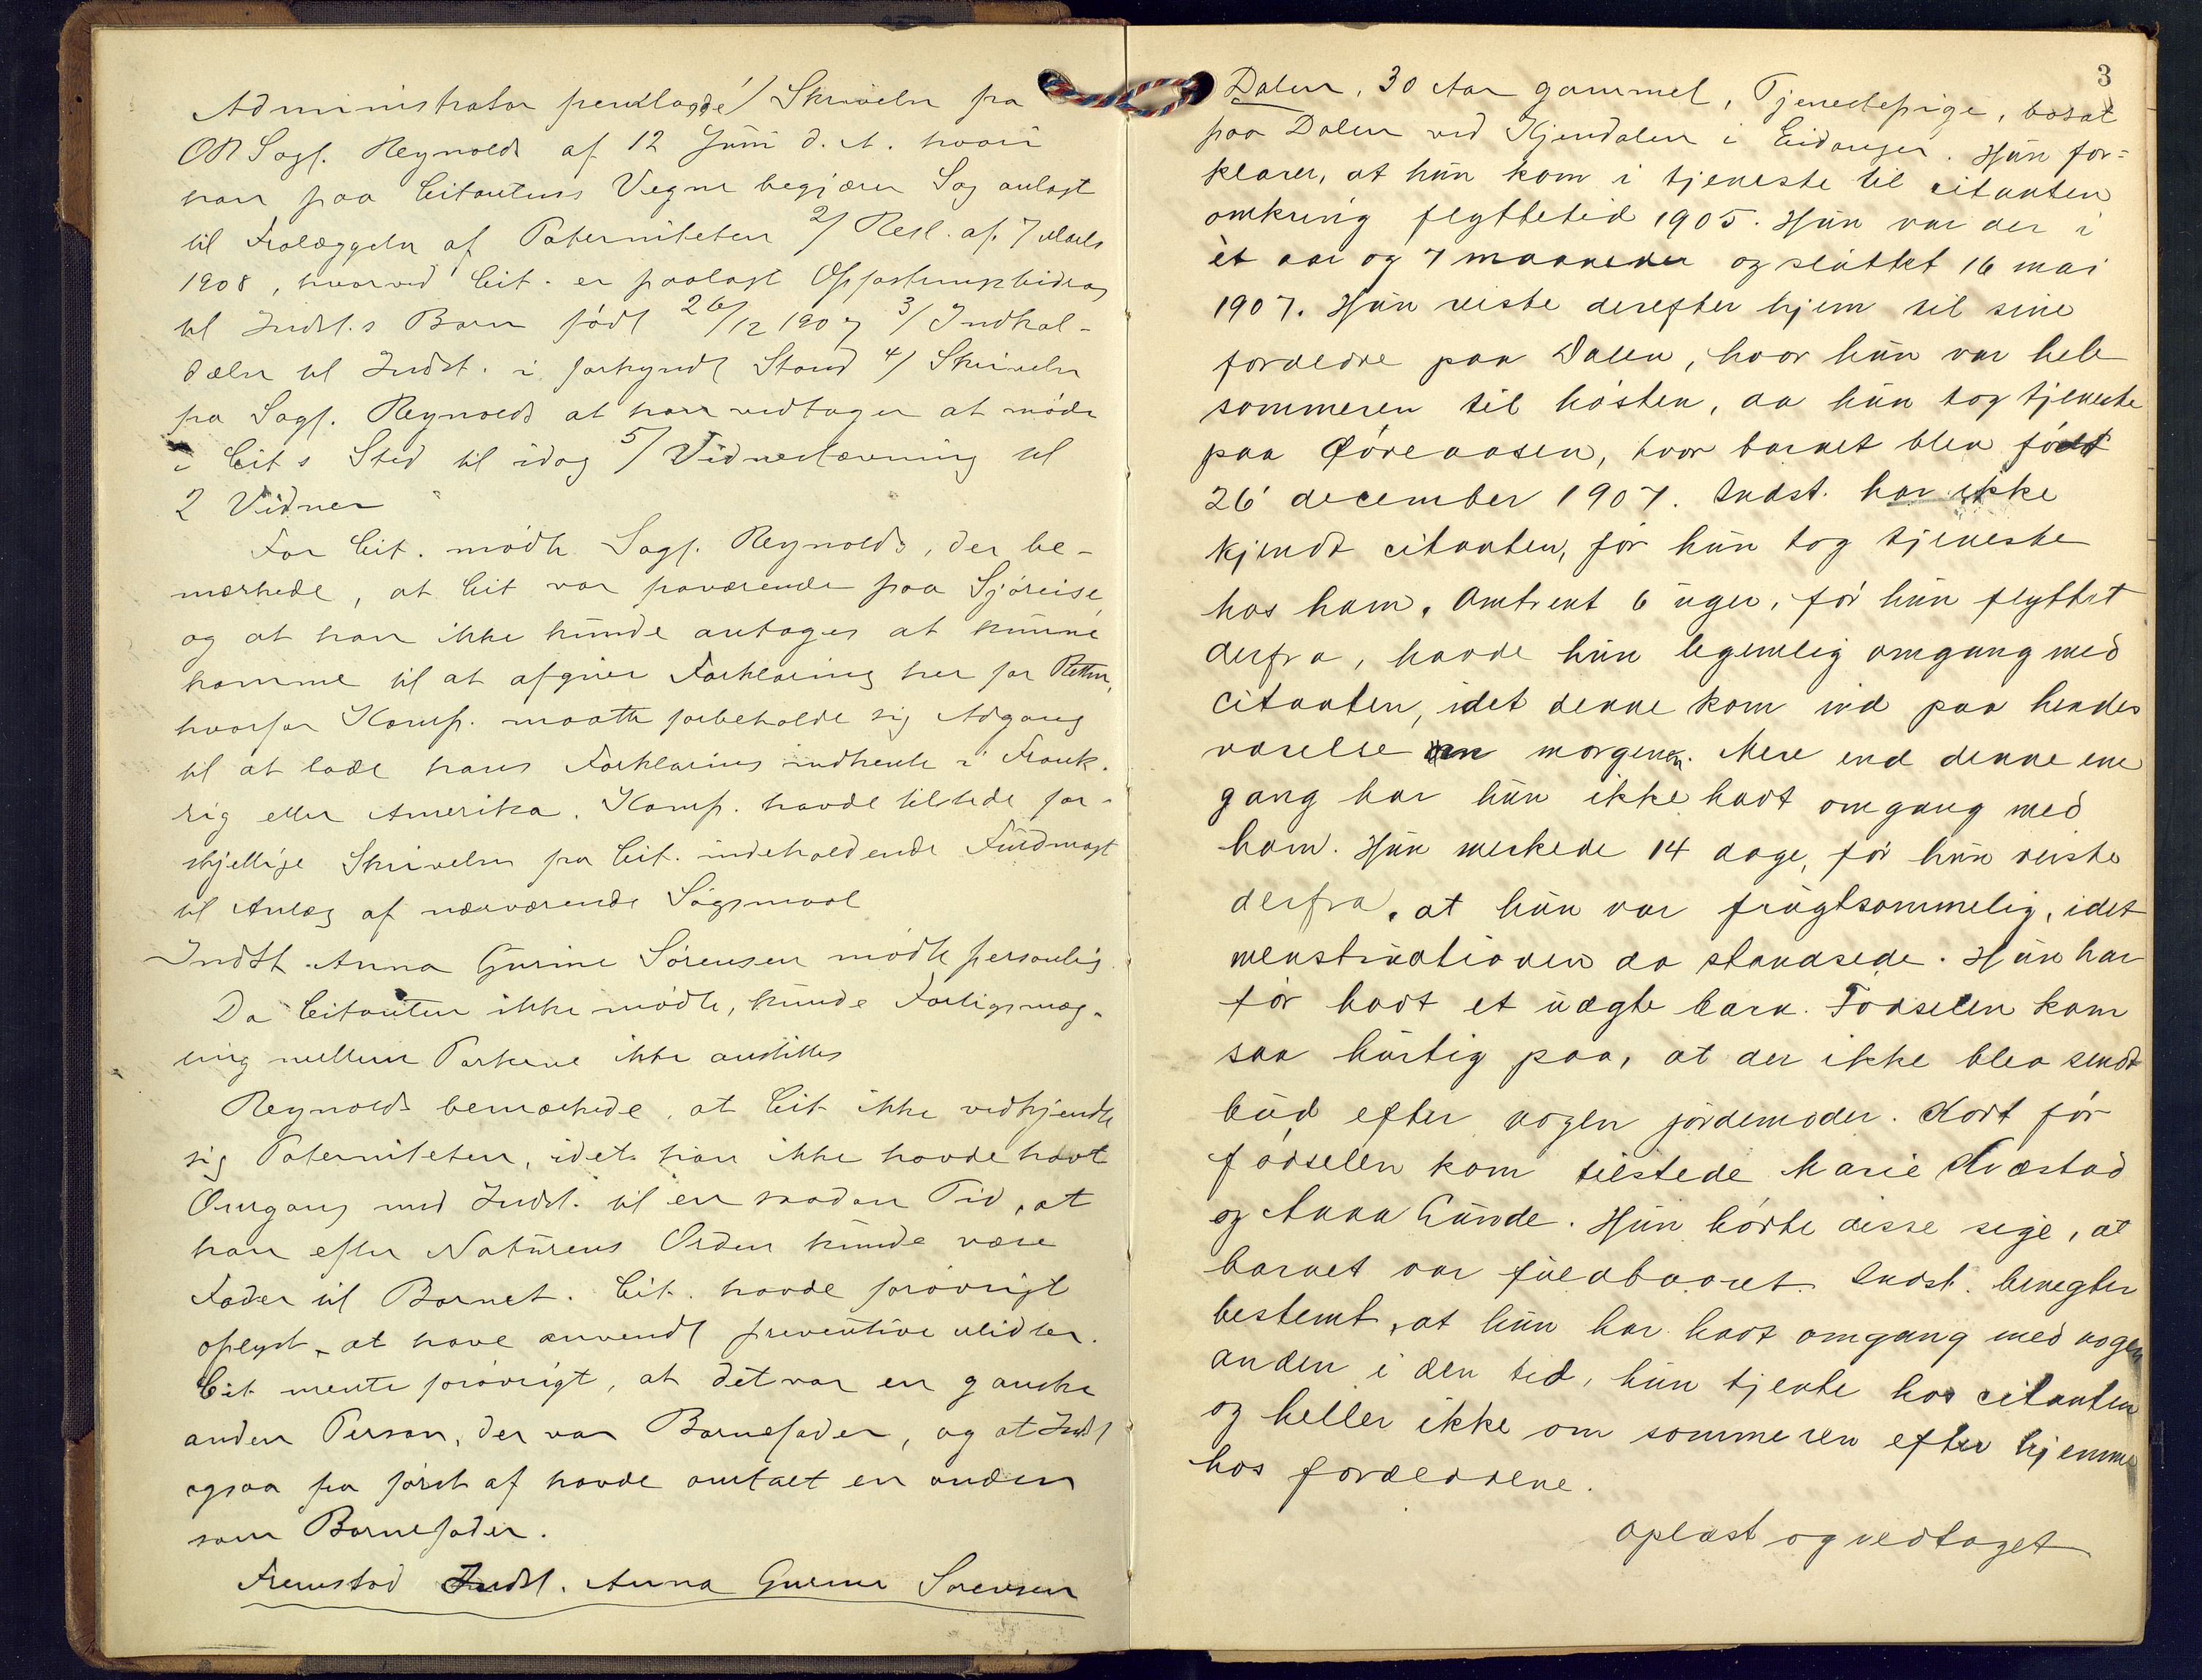 Administrator fremlagde 1/ Skrivelse fra
OR Sagf. Reynolds af 12 Juni d. A. hvori
han paa Citantens Vegne begjærer Sag anlagt
til Fralæggelse af Paterniteten 2/ Resl. af 7 Marts
1908, hvorved Cit. er paalagt Opfostringsbidrag
til Indst.s Barn født 26/12 1907 3/ Indkal-
delse til Indst. i forkyndt Stand 4/ Skrivelse
fra Sagf. Reynolds at han vedtager at møde
i Cit s Sted til idag 5/ Vidnestævning til
2 Vidner
For Cit. mødte Sagf. Reynolds, der be-
mærkede, at Cit var fraværende paa Sjöreise,
og at han ikke kunde antages at kunne
komme til at afgive Forklaring her for Retten,
hvorfor Komp. maatte forbeholde sig Adgang
til at lade hans Forklaring indhente i Frank.
rig eller Amerika. Komp. havde tilstede for-
skjellige Skrivelser fra Cit. indeholdende Fuldmagt
til Anlæg af nærværende Søgsmaal
Indst Anna Gurine Sörensen mødte personlig.
Da Citanten ikke mødte, kunde Forligsmæg-
ling mellem Parterne ikke anstilles
Reynolds bemærkede, at Cit ikke vedkjendte
sig Paterniteten, idet han ikke havde havt
Omgang med Indst. til en saadan Tid, at
han efter Naturens Orden kunde være
Fader til Barnet. Cit. havde forøvrigt
oplyst, at have anvendt preventive Midler.
Cit mente forøvrigt, at det var en ganske
anden Person, der var Barnefader, og at Indst
ogsaa fra først af havde omtalt en anden
som Barnefader.
Fremstod Indst. Anna Gurine Sørensen
3
Dalen, 30 Aar gammel, Tjenestepige, bosat
paa Dalen ved Kjendalen i Eidanger. Hun for=
klarer, at hun kom i tjeneste til citanten
omkring flyttetid 1905. Hun var der i
èt aar og 7 maaneder og sluttet 16 mai
1907. Hun reiste derefter hjem til sine
forældre paa Dalen, hvor hun var hele
sommeren til høsten, da hun tog tjeneste
paa Øreaasen, hvor barnet blev født
26 december 1907. Indst. har ikke
kjendt citanten, før hun tog tjeneste
hos ham. Omtrent 6 uger, før hun flyttet
derfra, havde hun legemlig omgang med
citanten, idet denne kom ind paa hendes
værelse en morgenen. Mere end denne ene
gang har hun ikke havt omgang med
ham. Hun merkede 14 dage, før hun reiste
derfra, at hun var frugtsommelig, idet
menstruationen da standsede. Hun har
før havt et uægte barn. Fødselen kom
saa hurtig paa, at der ikke blev sendt
bud efter nogen jordemoder. Kort før
fødselen kom tilstede Marie Kvæstad
og Anna Gunde. Hun hørte disse sige, at
barnet var fuldbaaret. Indst. benegter
bestemt, at hun har havt omgang med nogen
anden i den tid, hun tjente hos citanten
og heller ikke om sommeren efter hjemme
hos forældrene.
Oplæst og vedtaget